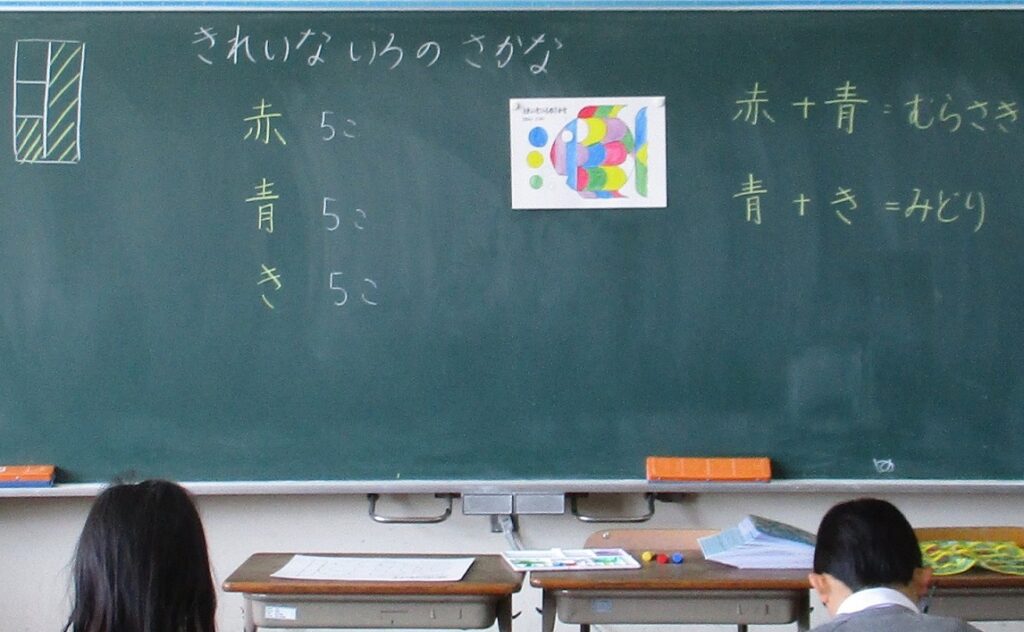 きれいないろの さかな
赤 5こ
青 5こ
き 5こ
赤 + 青 = むらさき
青 + き = みどり